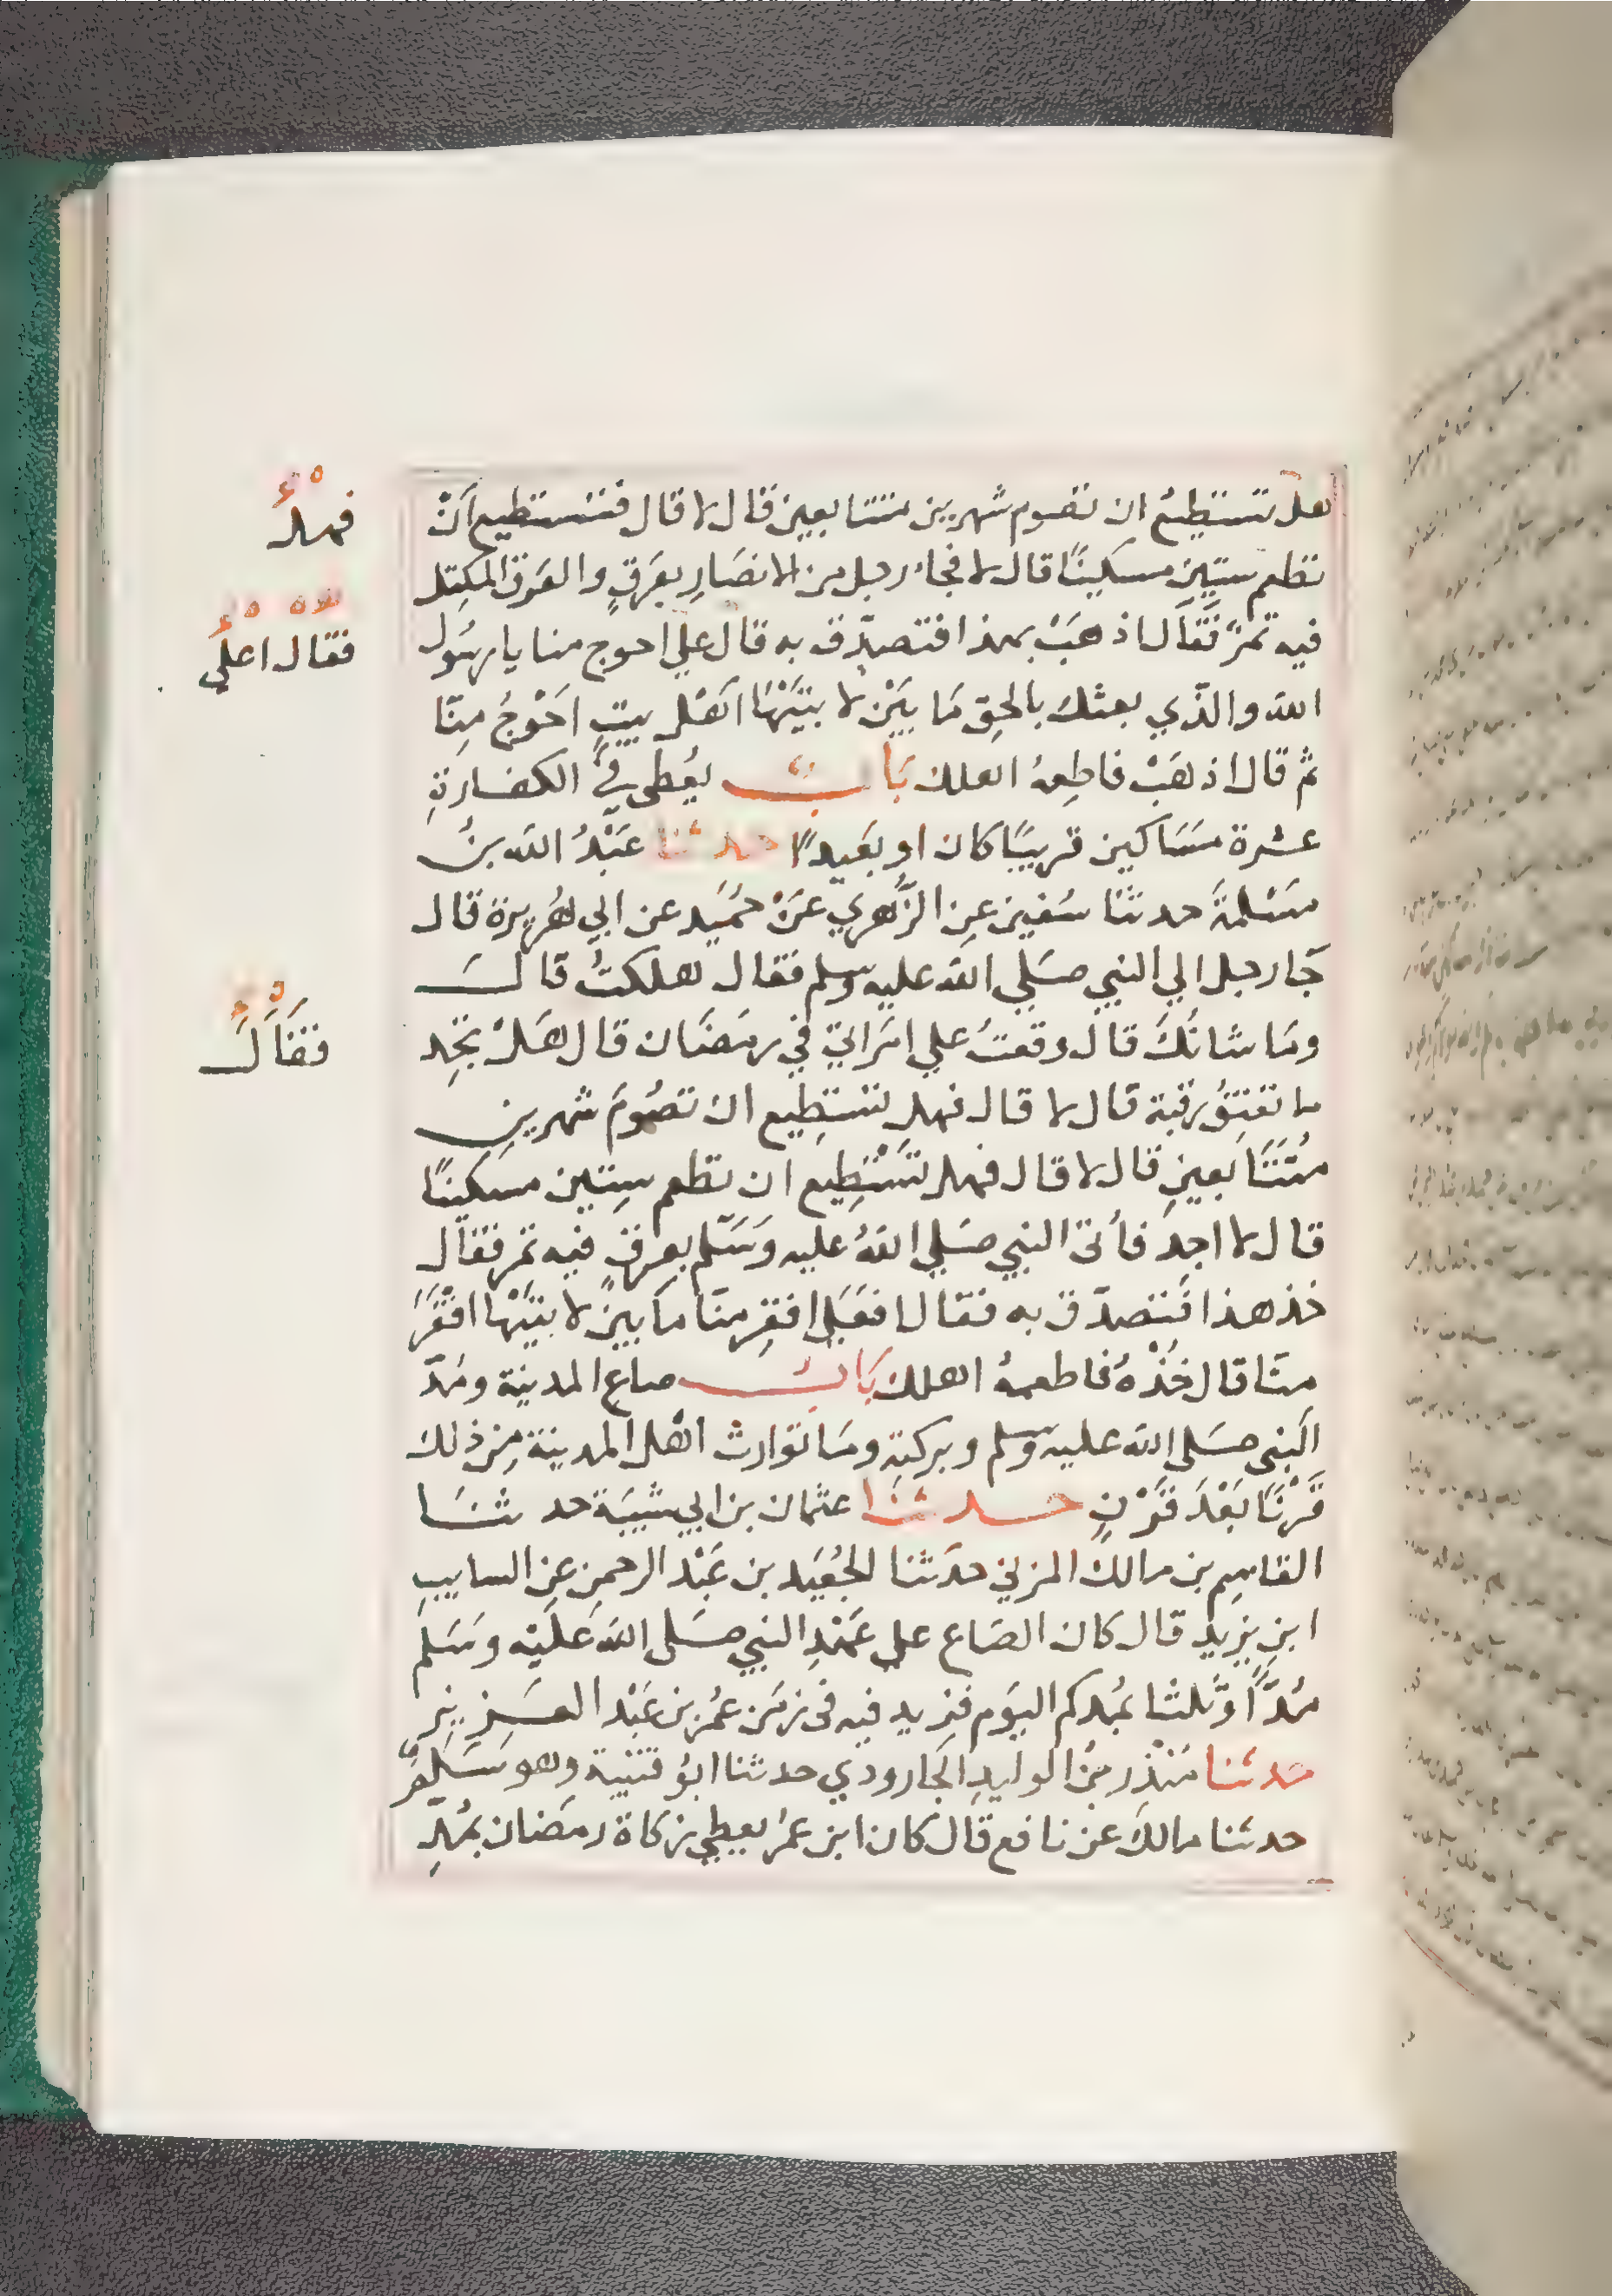 هل تستطيعُ ان تصوم شهرين متتابعين قال لا قال فتستطيع اَنْ
تطعم ستين مسكينًا قال لا فجاء رجل من الانصَارِ بعَرَقٍ والعَرق المكِتل
فيه تمرٌ فَقَال اذهَبْ بهذا فتصدّق به قال علي احوج منا يا رسُول
الله والذّي بعثك بالحق مَا بَيْنَ لا بتَيْهَا اَهْل بيتٍ احَوْجُ مِنّا
ثم قال اذهَبْ فاطعِمهُ اهلك بَابٌ يُعْطى في الكفارةِ
عشرة مسَاكين قريبًا كان او بعَيدًا حدثنا عَبْدُ الله بنُ
مسْلمةَ حدثنا سُفين عِن الزُّهري عَنْ حُمَيد عن ابي هُريرة قال
جَا رجل الي النبي صَلي الله عليه وسلم فقال هلكتُ قالَ
ومَا شانُكَ قال وقعتُ علي امرَاتي في رمضَان قال هَلْ تجِد
ما تعَتِقُ رقبة قال لا قال فهل تستطِيع ان تصُومَ شهرينِ
مُتَتَابعينِ قال لا قال فهل تَسْتَطِيع ان تطعم سِتين مسكينًا
قال لا اجد فأتىَ النبي صَلي اللهُ عليه وَسَلّم بعرقٍ فيه تمر فقال
خذ هذا فتصدّق به فقال افعَلي افقر منّا ما بينَ لا بتَيْها افْقَرَ
منّا قال خُذْهُ فاطعمهُ اهلك بَابُ صاع المدينة ومُدّ
النبي صَلى الله عليه وسلم وبركته ومَا توارث اهْل المدينة مِن ذلك
قَرْنًا بَعْدَ قَرْنٍ حدثنا عثمان بن ابي شيبَة حدثنَا
القاسِم بن مالك المزني حدَثنا الجُعَيد بن عَبْد الرحمن عِن السايب
ابن يزيد قال كان الصَاع علي عَهْدِ النبي صَلى الله عَليْه وسَلم
مُدًّا وَّثلثًا بمُدكم اليوَم فزيد فيه في زمَن عُمر بن عَبْد العَزيز
حَدثنا مُنْذر بنُ الوليد الجارودي حدثنا ابوُ قتيبة وهو سَلْمٌ
حدثنا مالكَ عن نافع قال كان ابن عمرُ يعطي زكاة رمضَان بمُدِّ
فهل
فقال اعلي
فقَالَ